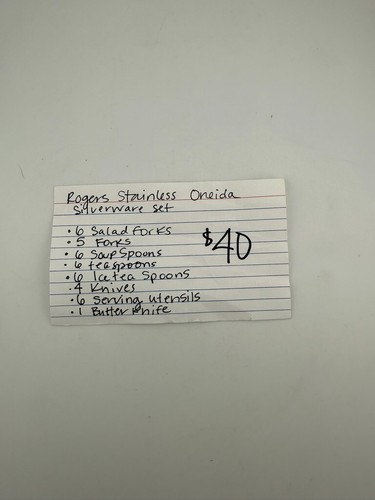 Rogers Stainless Oneida
Silverware Set
• 6 Salad Forks
• 5 Forks
• 6 Soup Spoons
• 6 teaspoons
• 6 Ice tea Spoons
• 4 Knives
• 6 Serving Utensils
• 1 Butter Knife
$40